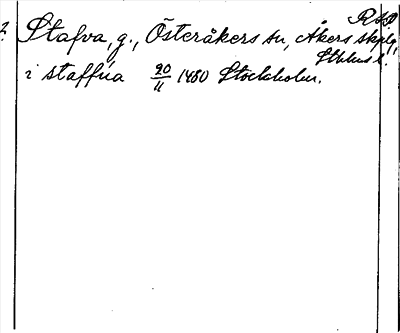 RAP
? Stafva, g., Österåkers sn, Åkers skplg,
Sthlms l.
i staffua 20/11 1480 Stockholm.